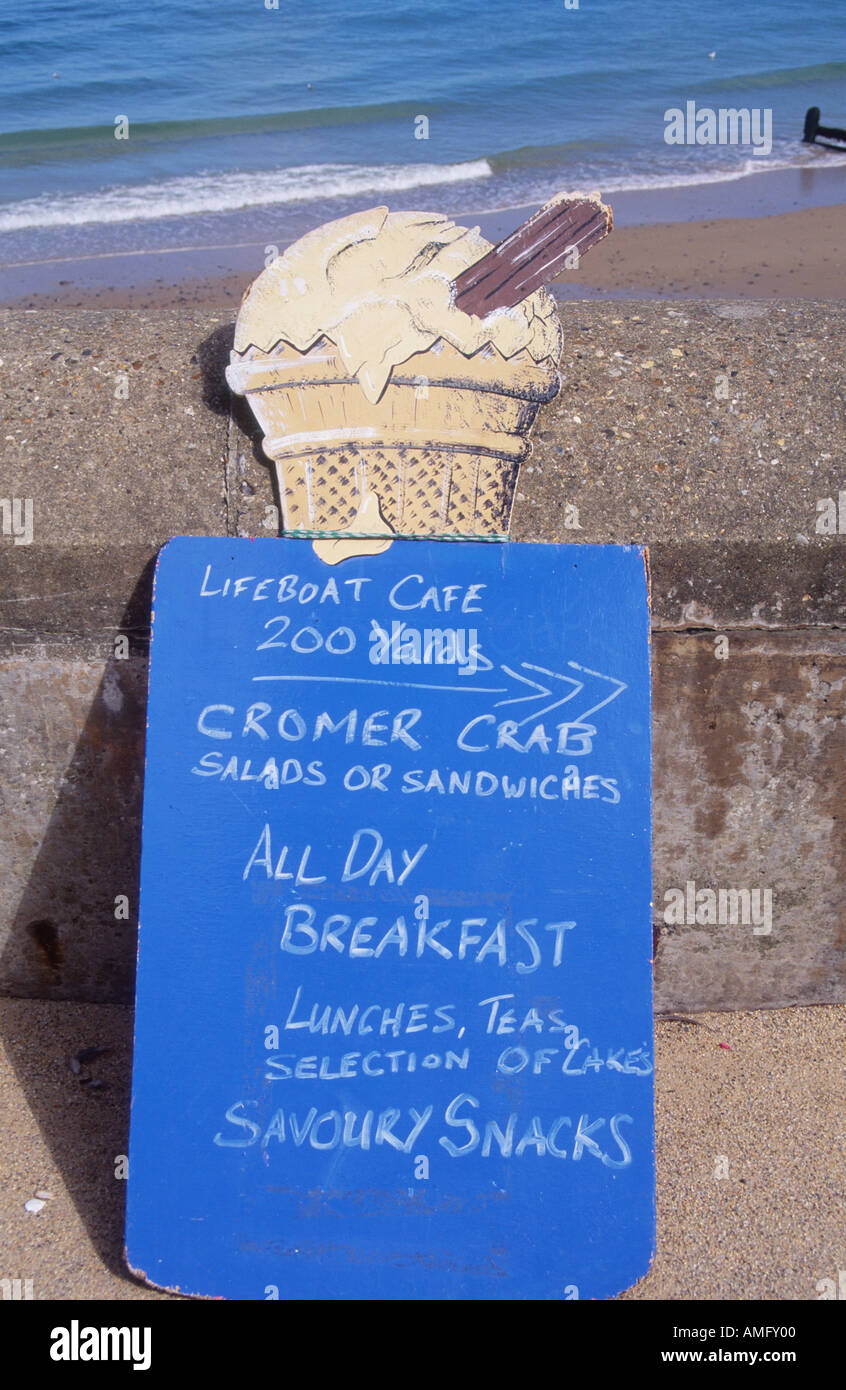 LIFEBOAT CAFE
200 Yards
CROMER CRAB
SALADS OR SANDWICHES
ALL DAY
BREAKFAST
LUNCHES, TEAS
SELECTION OF CAKE'S
SAVOURY SNACKS
alamy
alamy
Image ID: AMFY00
www.alamy.com